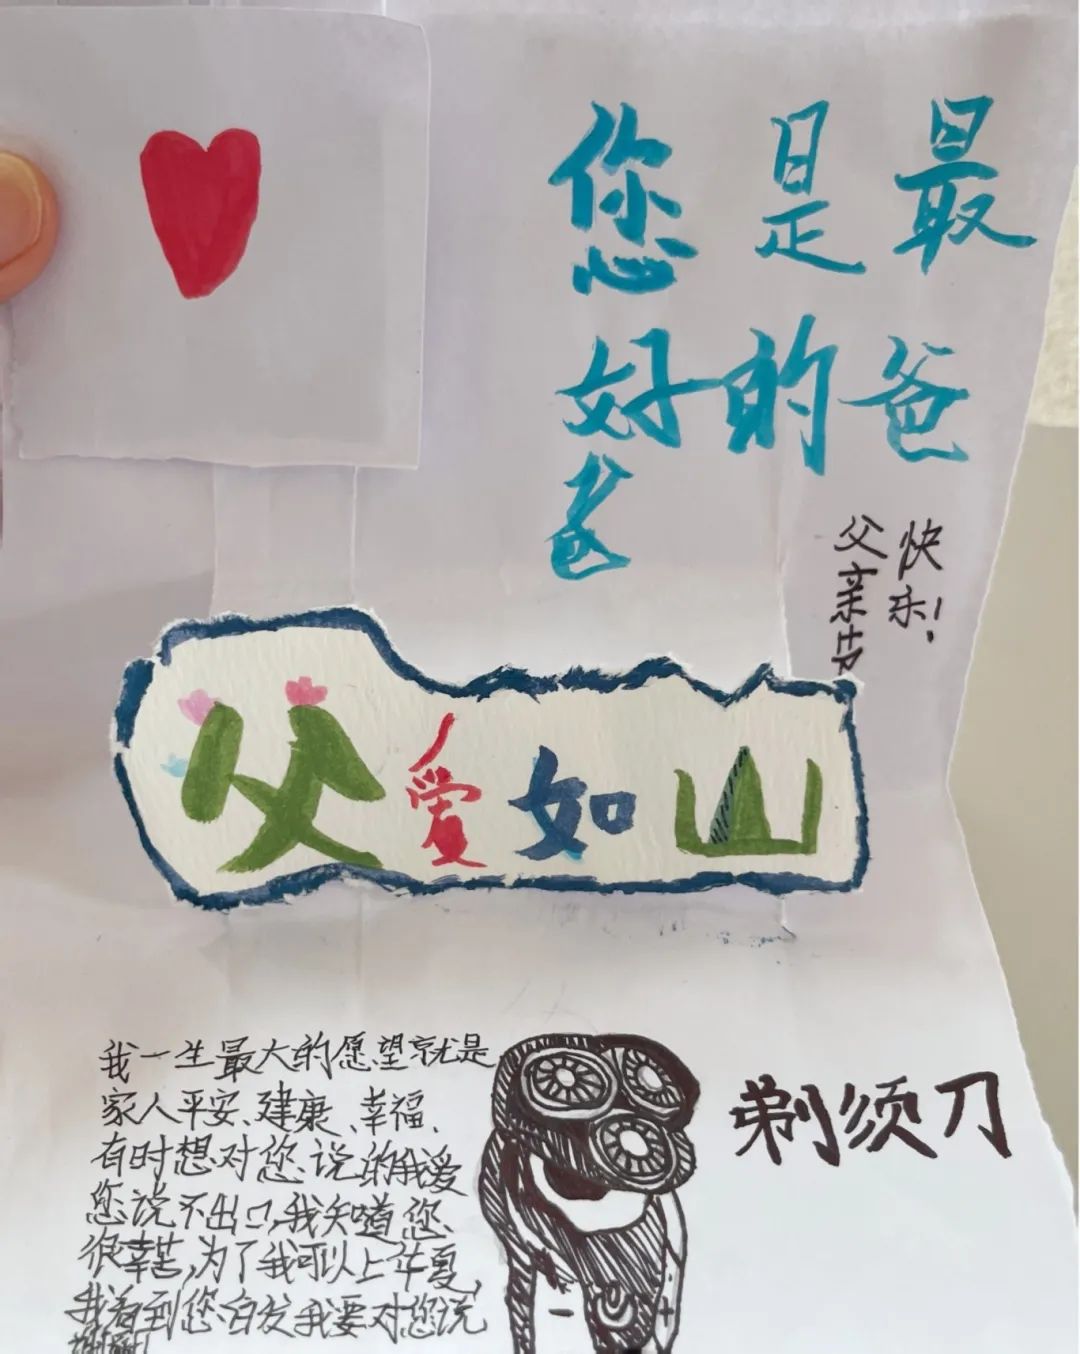 您是最
好的爸
爸
父亲节
快乐!
父爱如山
我一生最大的愿望就是
家人平安、建康、幸福.
有时想对您说的我爱
您说不出口,我知道您
很幸苦,为了我可以上华夏,
我看到您白发我要对您说
谢谢!
剃须刀